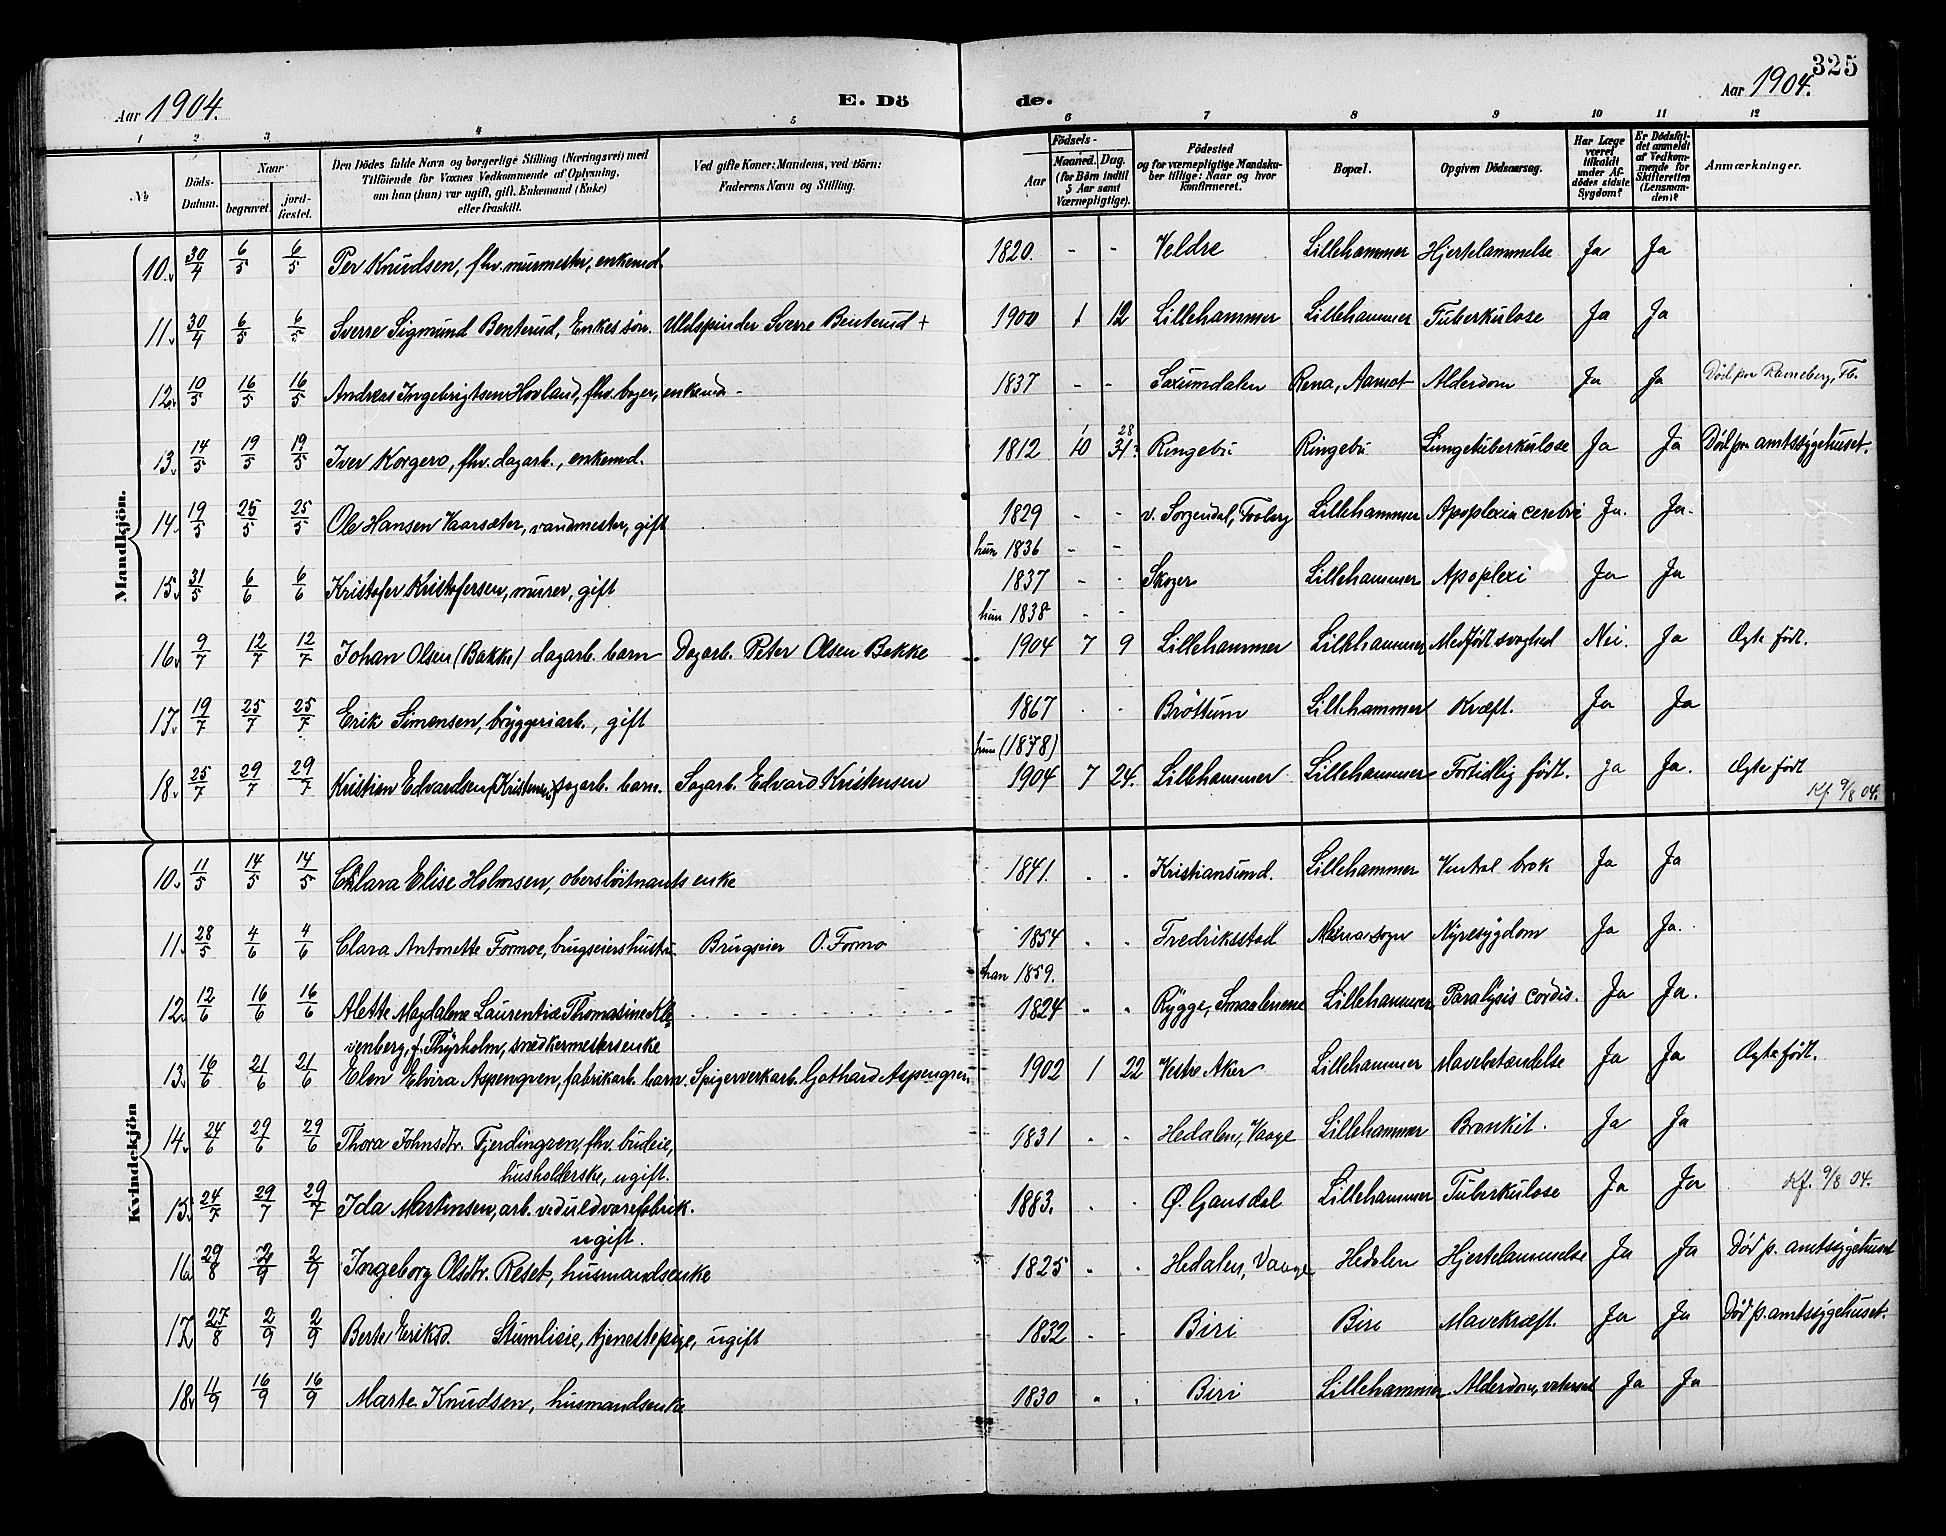 325
Aar 1904. E. Dö de. Aar 1904.
1 2 3 4 5 6 7 8 9 10 11 12
No.
Döds-Datum.
Naar
begravet.
jordfæstet.
Den Dödes fulde Navn og borgerlige Stilling (Næringsvei) med
Tilföiende for Voxnes Vedkommende af Oplysning,
om han (hun) var ugift, gift, Enkemand (Enke)
eller fraskilt.
Ved gifte Koner: Mandens, ved Börn:
Faderens Navn og Stilling.
Födsels-
Aar
Maaned. Dag.
(for Börn indtil
5 Aar samt
Værnepligtige).
Födested
og for værnepligtige Mandskaber tillige: Naar og hvor
konfirmeret.
Bopæl.
Opgiven Dödsaarsag.
Har Læge
været
tilkaldt
under Afdödes sidste
Sygdom?
Er Dödsfaldet anmeldt
af Vedkommende for
Skifteretten
(Lensmanden)?
Anmærkninger.
Mandkjön.
10. 30/4 6/5 6/5 Per Knudsen, fhv. murmester, enkemd. 1820. - - Veldre Lillehammer Hjertelammelse Ja Ja
11. 30/4 6/5 6/5 Sverre Sigmund Benterud, Enkes sön. Uldspinder Sverre Benterud + 1900 1 12 Lillehammer Lillehammer Tuberkulose Ja Ja
12. 10/5 16/5 16/5 Andreas Ingebrigtsen Hovland, fhv. enkemd - 1837 - - Saxumdalen Rena, Aamot Alderdom Ja Ja Död paa
13. 14/5 19/5 19/5 Iver Korgero, fhv. dagarb., enkemd. 1812 10 28 31? Ringebu Ringebu Lungetuberkulose Ja Ja Död paa amtssygehuset.
14. 19/5 25/5 25/5 Ole Hansen Vaarsæter, vandmester, gift 1829 - - v. Sorgendal, Lillehammer Apoplexia cerebri Ja. Ja.
hun 1836 - -
15. 31/5 6/6 6/6 Kristofer Kristofersen, murer, gift 1837 - - Skoger Lillehammer Apoplexi Ja Ja
hun 1838 - -
16. 9/7 12/7 12/7 Johan Olsen (Bakke) dagarb. barn Dagarb. Peter Olsen Bakke 1904 7 9 Lillehammer Lillehammer Medfødt svaghed Nei. Ja Ægte født.
17. 19/7 25/7 25/7 Erik Simensen, bryggeriarb., gift 1867 - - Brøttum Lillehammer Kræft. Ja Ja
hun (1878)
18. 25/7 29/7 29/7 Kristian Edvardsen (Kristensen) dagarb. barn. Dagarb. Edvard Kristensen 1904 7 24. Lillehammer Lillehammer Fortidlig født. Ja Ja. Ægte født
Kf. 9/8 04.
Kvindekjön
10. 11/5 14/5 14/5 Clara Elise Holmsen, oberstløitnants enke 1841. Kristiansund. Lillehammer Ventral brok Ja Ja
11. 28/5 4/6 4/6 Clara Antonette Formoe, brugseiershustru. Brugseier O. Formo 1854 Fredriksstad Mesna sogn Nyresygdom Ja Ja.
han 1859.
12. 12/6 16/6 16/6 Alette Magdalene Laurentia Thomasine Kle- 1824 Rygge, Smaalenene Lillehammer Paralysis cordis. Ja Ja.
venberg, f. Thyrholm, snedkermestersenke
13. 16/6 21/6 21/6 Elen Elvira Aspengren, fabrikarb. barn. Spigerverkarb. Gothard Aspengren 1902 1 22 Vestre Aker Lillehammer Mavebetændelse Ja Ja Ægte født.
14. 24/6 29/6 29/6 Thora Johnsdtr. Fjerdingren, fhv. budeie, 1831 Hedalen, Vaage Lillehammer Bronkit. Ja Ja
husholderske, ugift.
15. 24/7 29/7 29/7 Ida Martinsen, arb. ved uldvarefabrik. 1883. Ø. Gausdal Lillehammer Tuberkulose Ja Ja Kf. 9/8 04.
ugift.
16. 29/8 2/9 2/9 Ingeborg Olsdtr. Reset, husmandsenke 1825 Hedalen, Vaage Hedalen Hjertelammelse Ja Ja Död p. amtssygehuset
17. 27/8 2/9 2/9 Berte Eriksd. Stumlieie, tjenestepige, ugift 1832 Biri Biri Mavekræft. Ja Ja Död p. amtssygehuset.
18. 11/9 16/9 16/9 Marte Knudsen, husmandsenke 1830 Biri Lillehammer Alderdom, Ja Ja